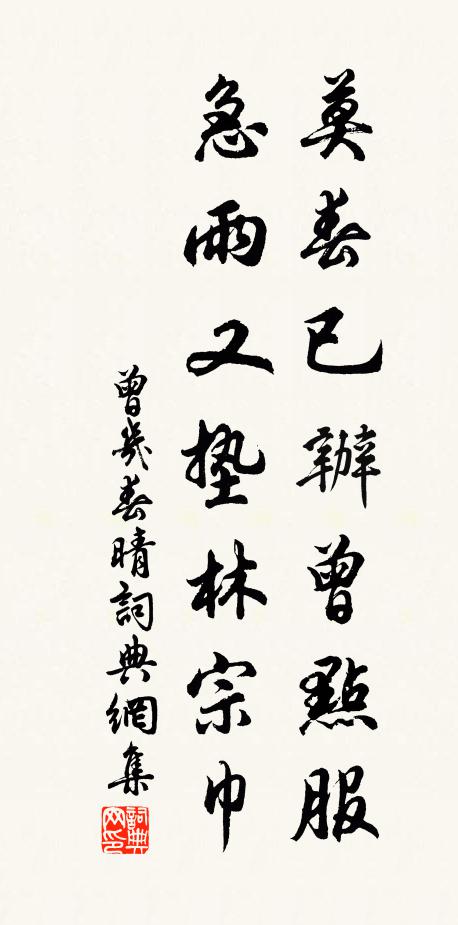 莫春已辦曾點服
急雨又墊林宗巾
曾幾春晴詞典網集
詞典網印